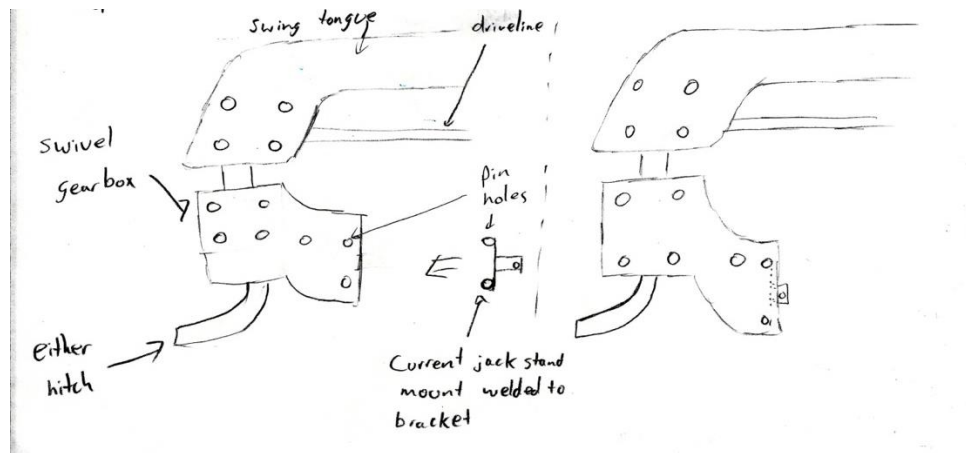 swing tongue
driveline
swivel
gearbox
pin
holes
either
hitch
Current jack stand
mount welded to
bracket